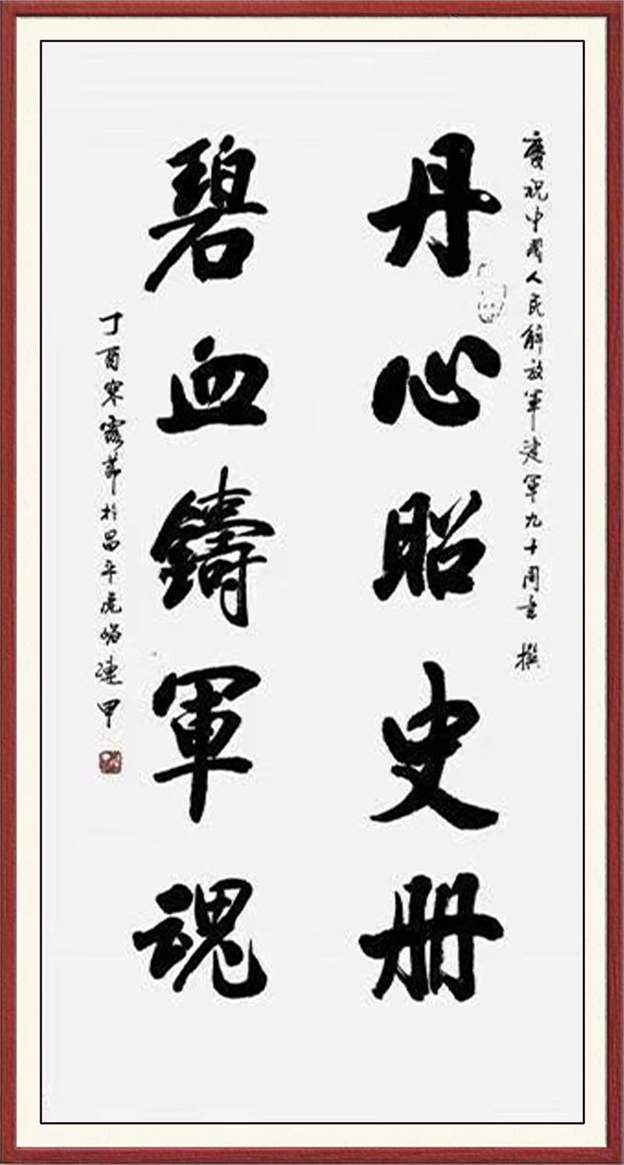 慶祝中國人民解放军建军九十周年 撰
丹心昭史册
碧血鑄軍魂
丁酉寒露节於昌平 連甲